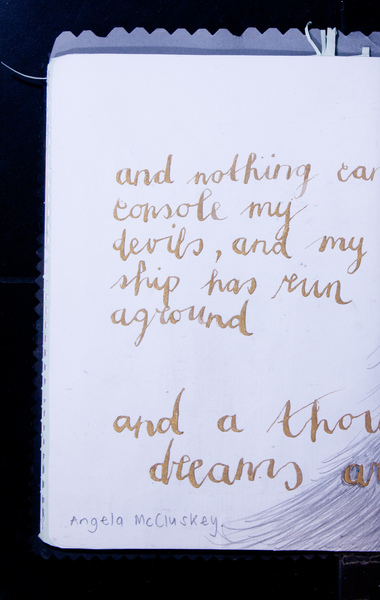 and nothing can
console my
devils, and my
ship has run
aground
and a thou
dreams a
Angela McCluskey.